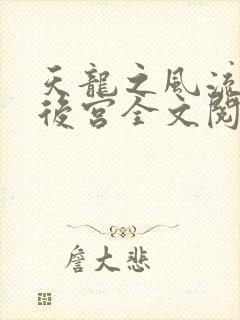 天龍之風流
後宮全文閱
詹大悲